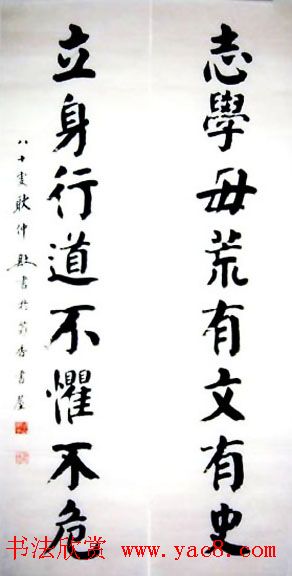 志學毋荒有文有史
立身行道不懼不危
八十叟耿仲敭書於翰香書屋
书法欣赏 www.yac8.com